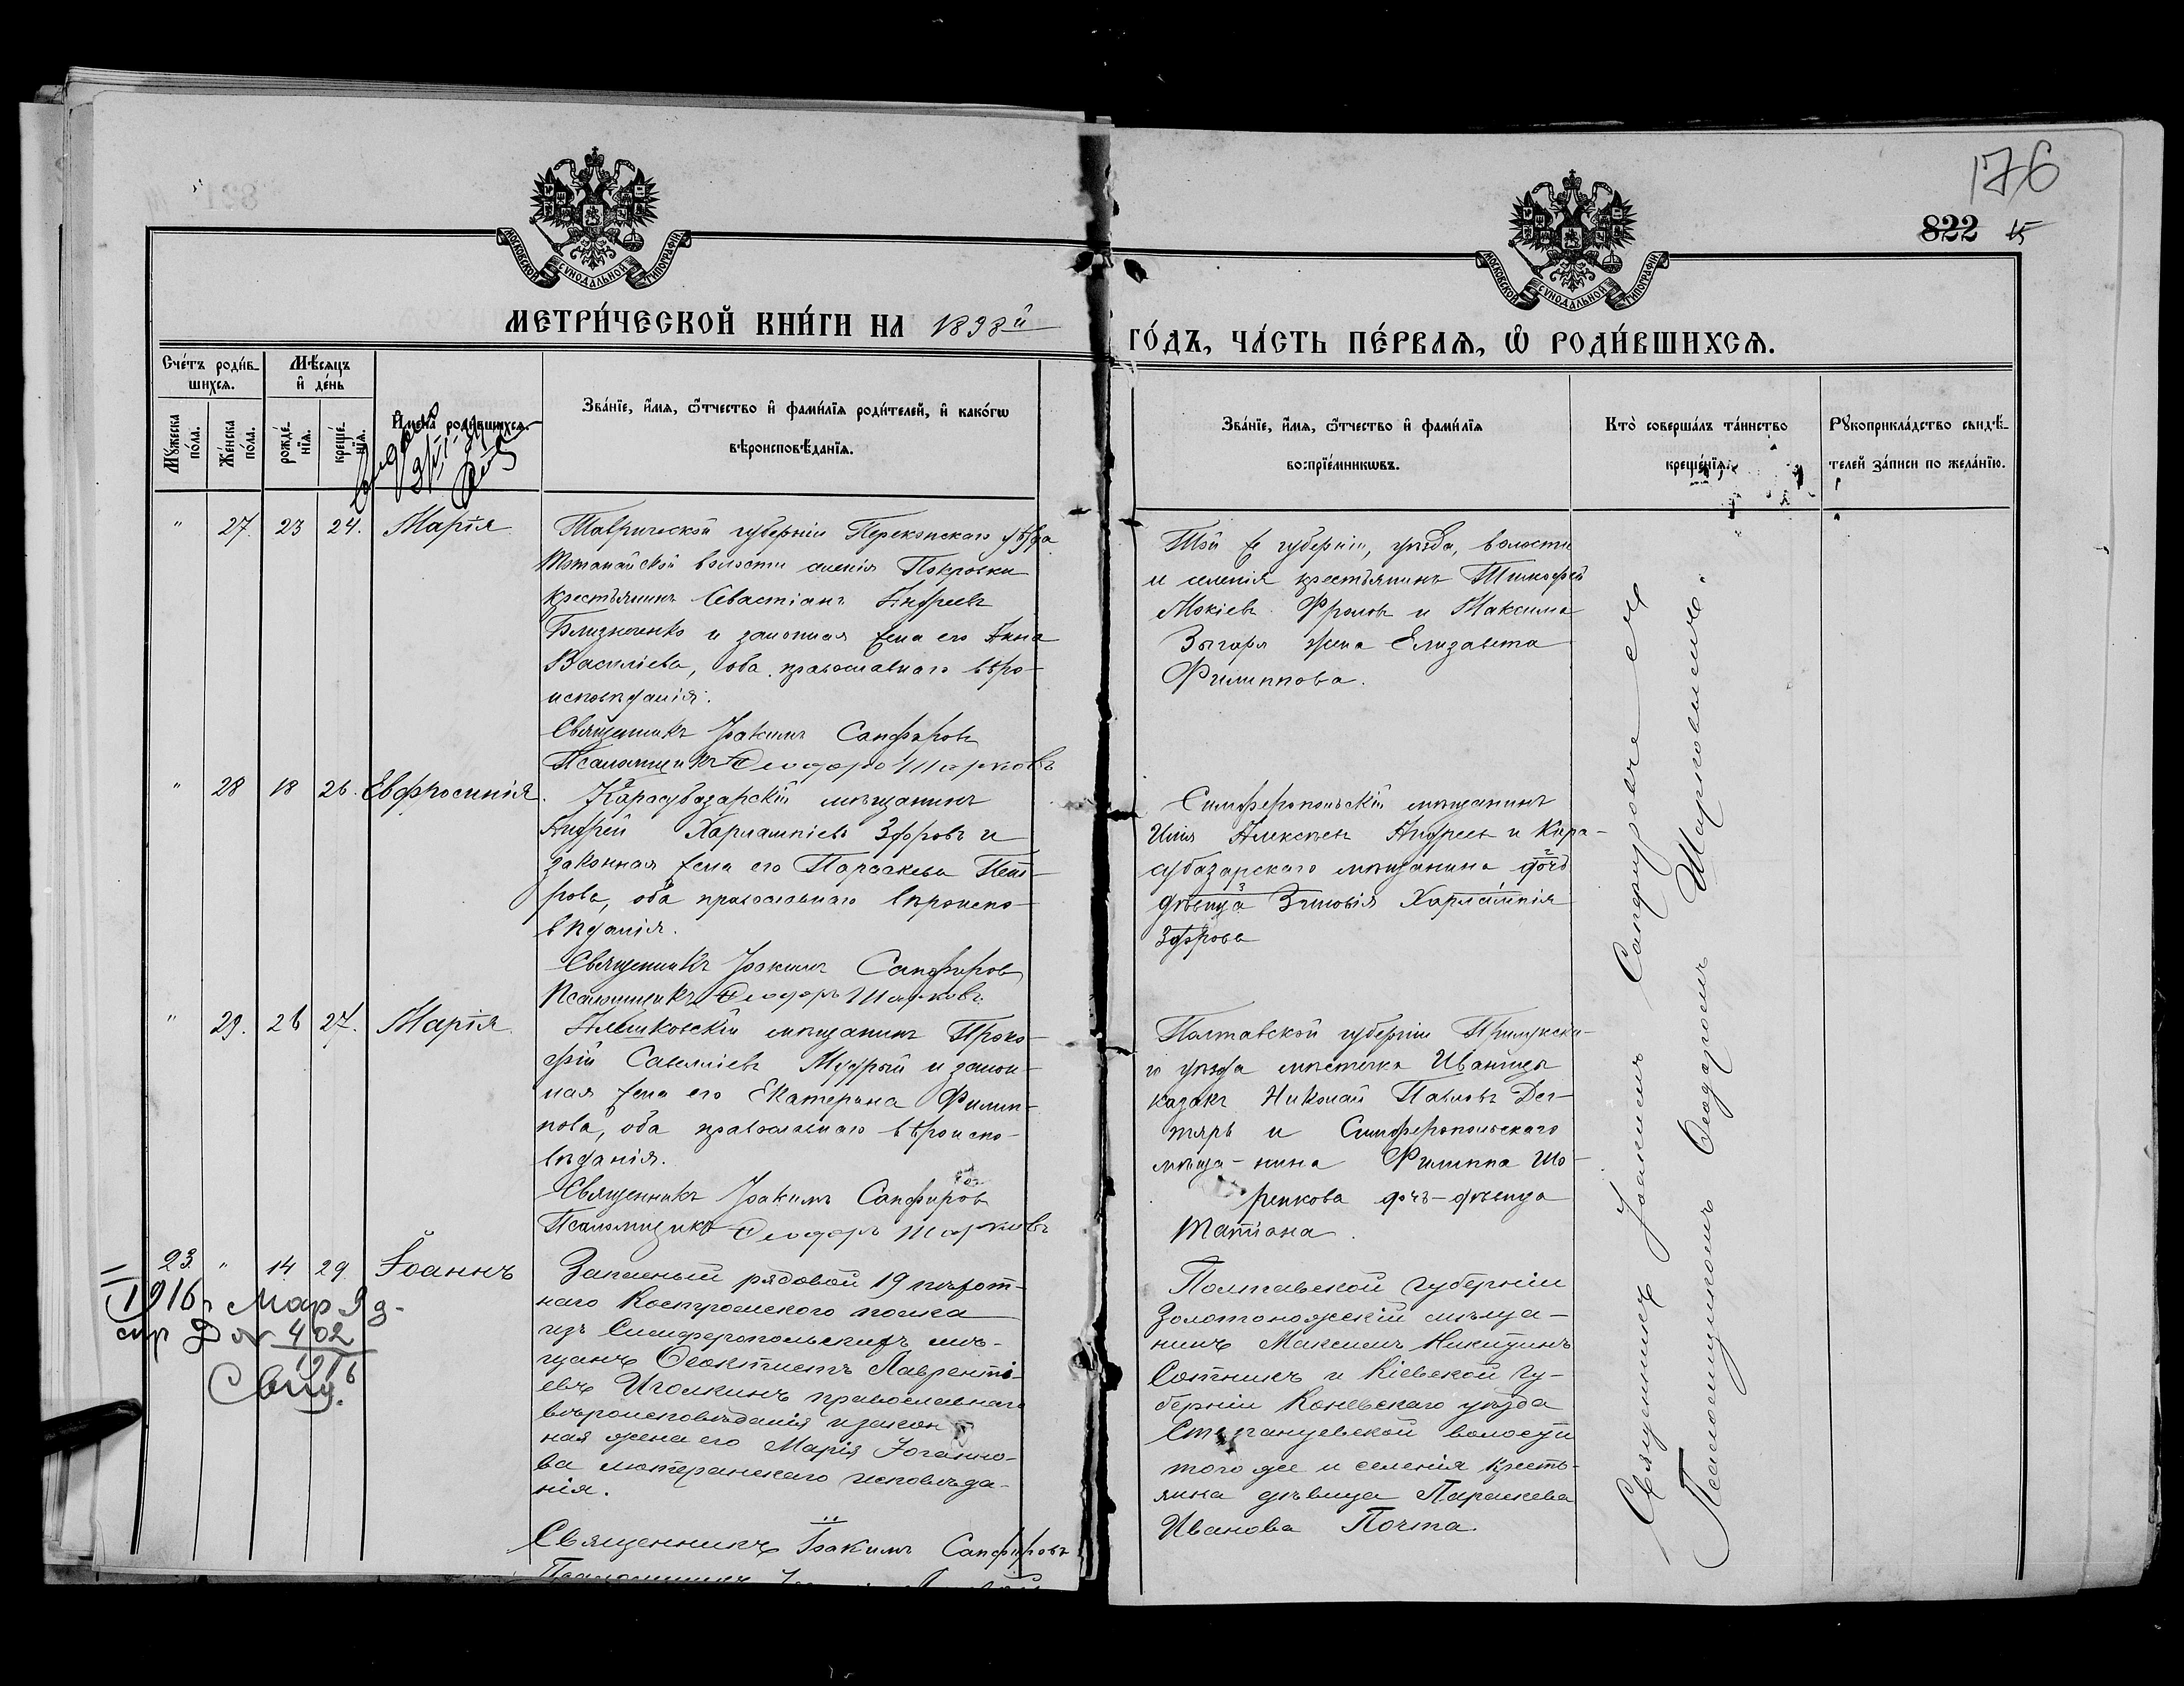 176
822 15
МОСКОВСКОЙ СУНОДАЛЬНОЙ ТИПОГРАФІИ
МОСКОВСКОЙ СУНОДАЛЬНОЙ ТИПОГРАФІИ
МЕТРИ́ЧЕСКОЙ КНИ́ГИ НА 1898й
ГО́ДЪ, ЧА́СТЬ ПЕ́РВАѦ, Ѽ РОДИ́ВШИХСѦ.
Сче́тъ роди́в-
шихсѧ.
Мѣ́сѧцъ
и҆ де́нь
Мꙋ́жеска по́ла.
Же́нска по́ла.
рожде́-нїѧ.
креще́-нїѧ.
И҆мена̀ роди́вшихсѧ.
Зва́нїе, и҆́мѧ, ѻ҆́тчество и҆ фами́лїѧ роди́телей, и҆ како́гѡ
вѣроисповѣ́данїѧ.
Зва́нїе, и҆́мѧ, ѻ҆́тчество и҆ фами́лїѧ
воспрїе́мникѡвъ.
Кто̀ соверша́лъ та́инство
креще́нїѧ.
Рꙋкоприкла́дство свидѣ́-
телей за́писи по жела́нїю.
" 27. 23 24. Марія
Таврической губерніи Перекопскаго уѣзда
волости селенія Покровки
крестьянинъ Севастіанъ Андреевъ
Близнеченко и законная жена его Анна
Василіева, оба православнаго вѣро-
исповѣданія.
Священникъ Іоакимъ Сапфировъ
Псаломщикъ Ѳеодоръ Шарковъ
Той же губерніи, уѣзда, волости
и селенія крестьянинъ Тимофей
Мокіевъ Фроловъ и Максима
Зыгаря жена Елизавета
Филиппова.
" 28 18 26. Евфросинія.
Карасубазарскій мѣщанинъ
Андрей Харлампіевъ Зфровъ и
законная жена его Параскева Пет-
рова, оба православнаго вѣроиспо-
вѣданія.
Священникъ Іоакимъ Сапфировъ
Псаломщикъ Ѳеодоръ Шарковъ
Симферопольскій мѣщанинъ
Илія Алексѣевъ Андреевъ и Кара-
субазарскаго мѣщанина дочь
дѣвица Зиновія Харлампія
Зфрова
" 29. 26 27. Марія
Алешковскій мѣщанинъ Проко-
фій Савелліевъ Мудрый и закон-
ная жена его Екатерина Филип-
пова, оба православнаго вѣроиспо-
вѣданія.
Священникъ Іоакимъ Сапфировъ
Псаломщикъ Ѳеодоръ Шарковъ
Полтавской губерніи Прилукска-
го уѣзда мѣстечка Иваницы
казакъ Николай Павловъ Дег-
тярь и Симферопольскаго
мѣща-нина Филиппа Шо-
ренкова дочь-дѣвица
Татіана.
23. " 14 29. Іоаннъ
Запасный рядовой 19 пѣхот-
наго Костромского полка
изъ Симферопольскихъ мѣ-
щанъ Ѳеоктистъ Лаврентi-
евъ Иголкинъ православнаго
вѣроисповѣданія и закон
ная жена его Марія Іоганно-
ва лютеранскаго исповѣда-
нія.
Священникъ Іоакимъ Сапфировъ
Полтавской губерніи
Золотоножскій мѣща-
нинъ Максимъ Никитинъ
Сотникъ и Кіевской гу-
берніи Каневскаго уѣзда
Степанцевской волости
того же и селенія кресть-
янина дѣвица Параскева
Иванова Почта.
1916 г Мар 9 д.
402
1916
Свид.
Священникъ Іоакимъ Сапфировъ
Псаломщикомъ Ѳеодоромъ Шарковымъ.